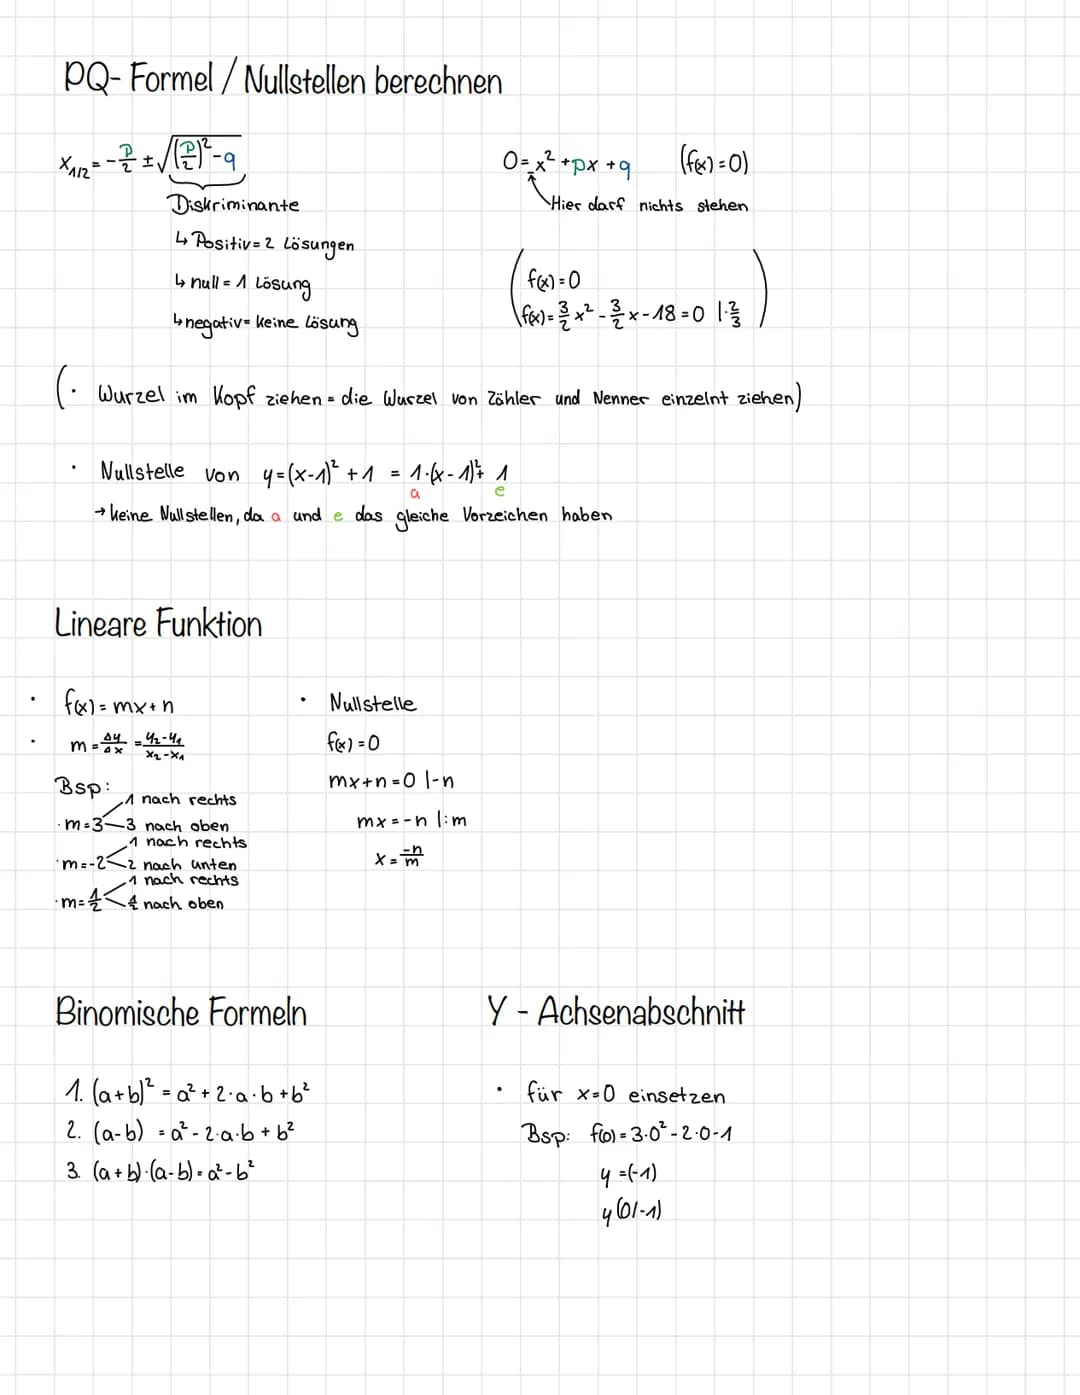 PQ- Formel / Nullstellen berechnen
X₁/₂ = -p/2 ± √((p/2)² - q)
Diskriminante
↳ Positiv = 2 Lösungen
↳ null = 1 Lösung
↳ negativ = keine Lösung
0 = x² + px + q (f(x) = 0)
Hier darf nichts stehen
(f(x) = 0
f(x) = 3/2 x² - 3/2 x - 18 = 0 |·2/3)
(· Wurzel im Kopf ziehen = die Wurzel von Zähler und Nenner einzelnt ziehen)
· Nullstelle von y = (x-1)² + 1 = 1·(x-1)² + 1
a e
→ keine Nullstellen, da a und e das gleiche Vorzeichen haben
Lineare Funktion
· f(x) = mx + n
· m = Δy/Δx = y₂-y₁/x₂-x₁
Bsp:
1 nach rechts
· m = 3 3 nach oben
1 nach rechts
· m = -2 2 nach unten
1 nach rechts
· m = 1/2 1/2 nach oben
· Nullstelle
f(x) = 0
mx + n = 0 |-n
mx = -n |:m
x = -n/m
Binomische Formeln
1. (a+b)² = a² + 2·a·b + b²
2. (a-b) = a² - 2·a·b + b²
3. (a+b)·(a-b) = a² - b²
Y - Achsenabschnitt
· für x=0 einsetzen
Bsp: f(0) = 3·0² - 2·0 - 1
y = (-1)
y (0/-1)